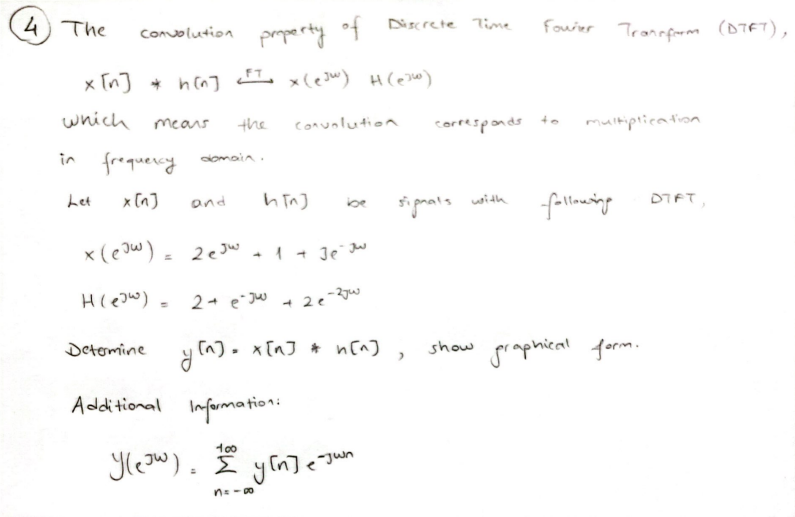 4 The convolution property of Discrete Time Fourier Transform (DTFT),
x[n] * h[n] <-FT-> x(e^jw) H(e^jw)
which means the convolution corresponds to multiplication
in frequency domain.
Let x[n] and h[n] be signals with following DTFT,
x(e^jw) = 2e^jw + 1 + 3e^-jw
H(e^jw) = 2 + e^-jw + 2e^-2jw
Determine y[n] = x[n] * h[n], show graphical form.
Additional Information:
Y(e^jw) = Σ_{n=-∞}^{+∞} y[n] e^-jwn